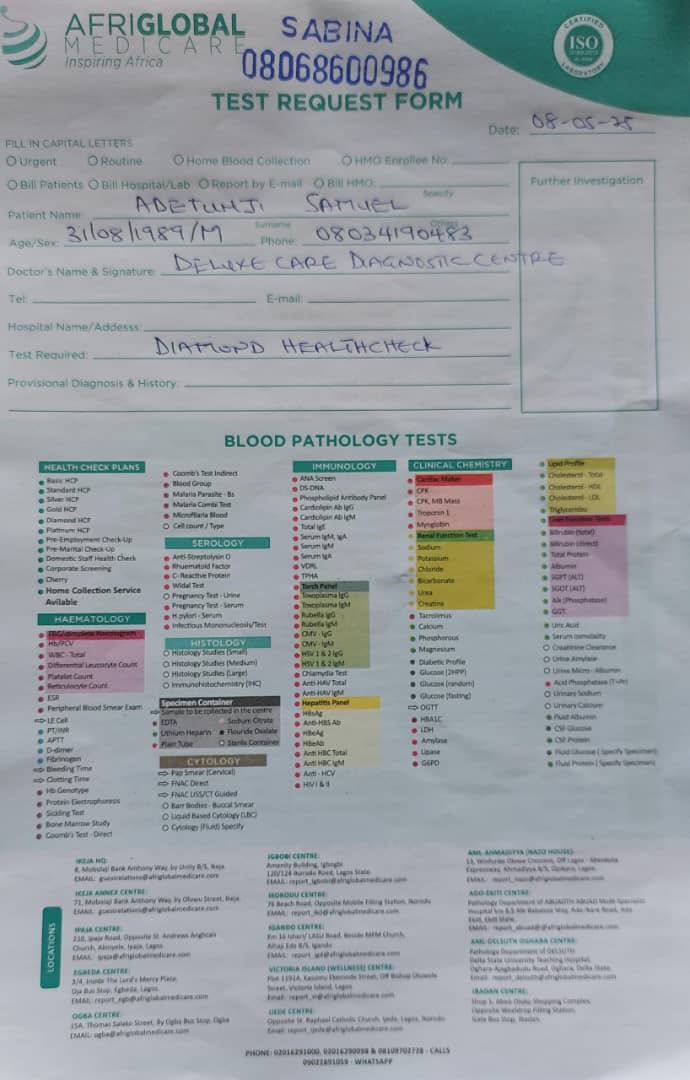 AFRIGLOBAL
MEDICARE
Inspiring Africa
SABINA
08068600986
CERTIFIED
ISO
LABORATORY
TEST REQUEST FORM
Date: 08-05-25
FILL IN CAPITAL LETTERS
Urgent Routine Home Blood Collection HMO Enrollee No:
Bill Patients Bill Hospital/Lab Report by E-mail Bill HMO:
Specify
Further Investigation
Patient Name: ADETUNJI SAMUEL
Surname Others
Age/Sex: 31/08/1989/M Phone: 08034190483
Doctor's Name & Signature: DELUXE CARE DIAGNOSTIC CENTRE
Tel: E-mail:
Hospital Name/Addesss:
Test Required: DIAMOND HEALTHCHECK
Provisional Diagnosis & History:
BLOOD PATHOLOGY TESTS
HEALTH CHECK PLANS
Basic HCP
Standard HCP
Silver HCP
Gold HCP
Diamond HCP
Platinum HCP
Pre-Employment Check-Up
Pre-Marital Check-Up
Domestic Staff Health Check
Corporate Screening
Cherry
Home Collection Service
Available
HAEMATOLOGY
FBC/complete Haemogram
Hb/PCV
WBC - Total
Differential Leucocyte Count
Platelet Count
Reticulocyte Count
ESR
Peripheral Blood Smear Exam
LE Cell
PT/INR
APTT
D-dimer
Fibrinogen
Bleeding Time
Clotting Time
Hb Genotype
Protein Electrophoresis
Sickling Test
Bone Marrow Study
Coomb's Test - Direct
Coomb's Test Indirect
Blood Group
Malaria Parasite - Bs
Malaria Combi Test
Microfilaria Blood
Cell count / Type
SEROLOGY
Anti-Streptolysin O
Rheumatoid Factor
C-Reactive Protein
Widal Test
Pregnancy Test - Urine
Pregnancy Test - Serum
H.pylori - Serum
Infectious Mononucleosis/Test
HISTOLOGY
Histology Studies (Small)
Histology Studies (Medium)
Histology Studies (Large)
Immunohistochemistry (IHC)
Specimen Container
Sample to be collected in the centre
EDTA Sodium Citrate
Lithium Heparin Flouride Oxalate
Plain Tube Sterile Container
CYTOLOGY
Pap Smear (Cervical)
FNAC Direct
FNAC USS/CT Guided
Barr Bodies - Buccal Smear
Liquid Based Cytology (LBC)
Cytology (Fluid) Specify
IMMUNOLOGY
ANA Screen
DS DNA
Phospholipid Antibody Panel
Cardiolipin Ab IgG
Cardiolipin Ab IgM
Total IgE
Serum IgM, IgA
Serum IgM
Serum IgA
VDRL
TPHA
Torch Panel
Toxoplasma IgG
Toxoplasma IgM
Rubella IgG
Rubella IgM
CMV - IgG
CMV - IgM
HSV 1 & 2 IgG
HSV 1 & 2 IgM
Chlamydia Test
Anti-HAV Total
Anti-HAV IgM
Hepatitis Panel
HBsAg
Anti-HBS Ab
HBeAg
HBeAb
Anti HBC Total
Anti HBC IgM
Anti - HCV
HIV I & II
CLINICAL CHEMISTRY
Cardiac Maker
CPK
CPK, MB Mass
Troponin 1
Myoglobin
Renal Function Test
Sodium
Potassium
Chloride
Bicarbonate
Urea
Creatine
Tacrolimus
Calcium
Phosphorous
Magnesium
Diabetic Profile
Glucose (2HPP)
Glucose (random)
Glucose (fasting)
OGTT
HBA1C
LDH
Amylase
Lipase
G6PD
Lipid Profile
Cholesterol - Total
Cholesterol - HDL
Cholesterol - LDL
Triglycerides
Liver Function Tests
Bilirubin (total)
Bilirubin (direct)
Total Protein
Albumin
SGPT (ALT)
SGOT (ALT)
Alk (Phosphatase)
GGT
Uric Acid
Serum osmolality
Creatinine Clearance
Urine Amylase
Urine Micro - Albumin
Acid Phosphatase (T+Pr)
Urinary Sodium
Urinary Calcium
Fluid Albumin
CSF Glucose
CSF Protein
Fluid Glucose ( Specify Specimen)
Fluid Protein ( Specify Specimen)
LOCATIONS
IKEJA HQ:
8, Mobolaji Bank Anthony Way, by Unity B/S, Ikeja.
EMAIL: guestrelations@afriglobalmedicare.com
IKEJA ANNEX CENTRE:
71, Mobolaji Bank Anthony Way, by Olowu Street, Ikeja.
EMAIL: guestrelations@afriglobalmedicare.com
IPAJA CENTRE:
210, Ipaja Road, Opposite St. Andrews Anglican
Church, Akinyele, Ipaja, Lagos.
EMAIL: ipaja@afriglobalmedicare.com
EGBEDA CENTRE:
3/4, Inside The Lord's Mercy Plaza,
Oja Bus Stop, Egbeda, Lagos.
EMAIL: report_egb@afriglobalmedicare.com
OGBA CENTRE:
15A, Thomas Salako Street, By Ogba Bus Stop, Ogba
EMAIL: ogba@afriglobalmedicare.com
IGBOBI CENTRE:
Amenity Building, Igbogbi
120/124 Ikorodu Road, Lagos State.
EMAIL: report_igbobi@afriglobalmedicare.com
IKORODU CENTRE:
76 Beach Road, Opposite Mobile Filling Station, Ikorodu
EMAIL: report_ikd@afriglobalmedicare.com
IGANDO CENTRE:
Km 16 Isheri/ LASU Road, Beside MFM Church,
Afraji Edo B/S, Igando
EMAIL: report_igd@afriglobalmedicare.com
VICTORIA ISLAND (WELLNESS) CENTRE:
Plot 1192A, Kasumu Ekemode Street, Off Bishop Oluwole
Street, Victoria Island, Lagos
Email: report_vi@afriglobalmedicare.com
IJEDE CENTRE:
Opposite St. Raphael Catholic Church, Ijede, Lagos, Ikorodu
Email: report_ijede@afriglobalmedicare.com
AML AHMADIYYA (NAZO HOUSE):
Expressway, Ahmadiyya B/S, Ojokoro, Lagos.
EMAIL: report_nazo@afriglobalmedicare.com
ADO-EKITI CENTRE:
Ekiti, Ekiti State.
AML DELSUTH OGHARA CENTRE:
Pathology Department of DELSUTH
Delta State University Teaching Hospital,
Oghara-Ajagbodudu Road, Oghara, Delta State.
Email: report_delsuth@afriglobalmedicare.com
IBADAN CENTRE:
Shop 1, Abva Olubo Shopping Complex,
Gate Bus Stop, Ibadan.
PHONE: 02016291000, 02016290998 & 08109702728 - CALLS
09022891059 - WHATSAPP